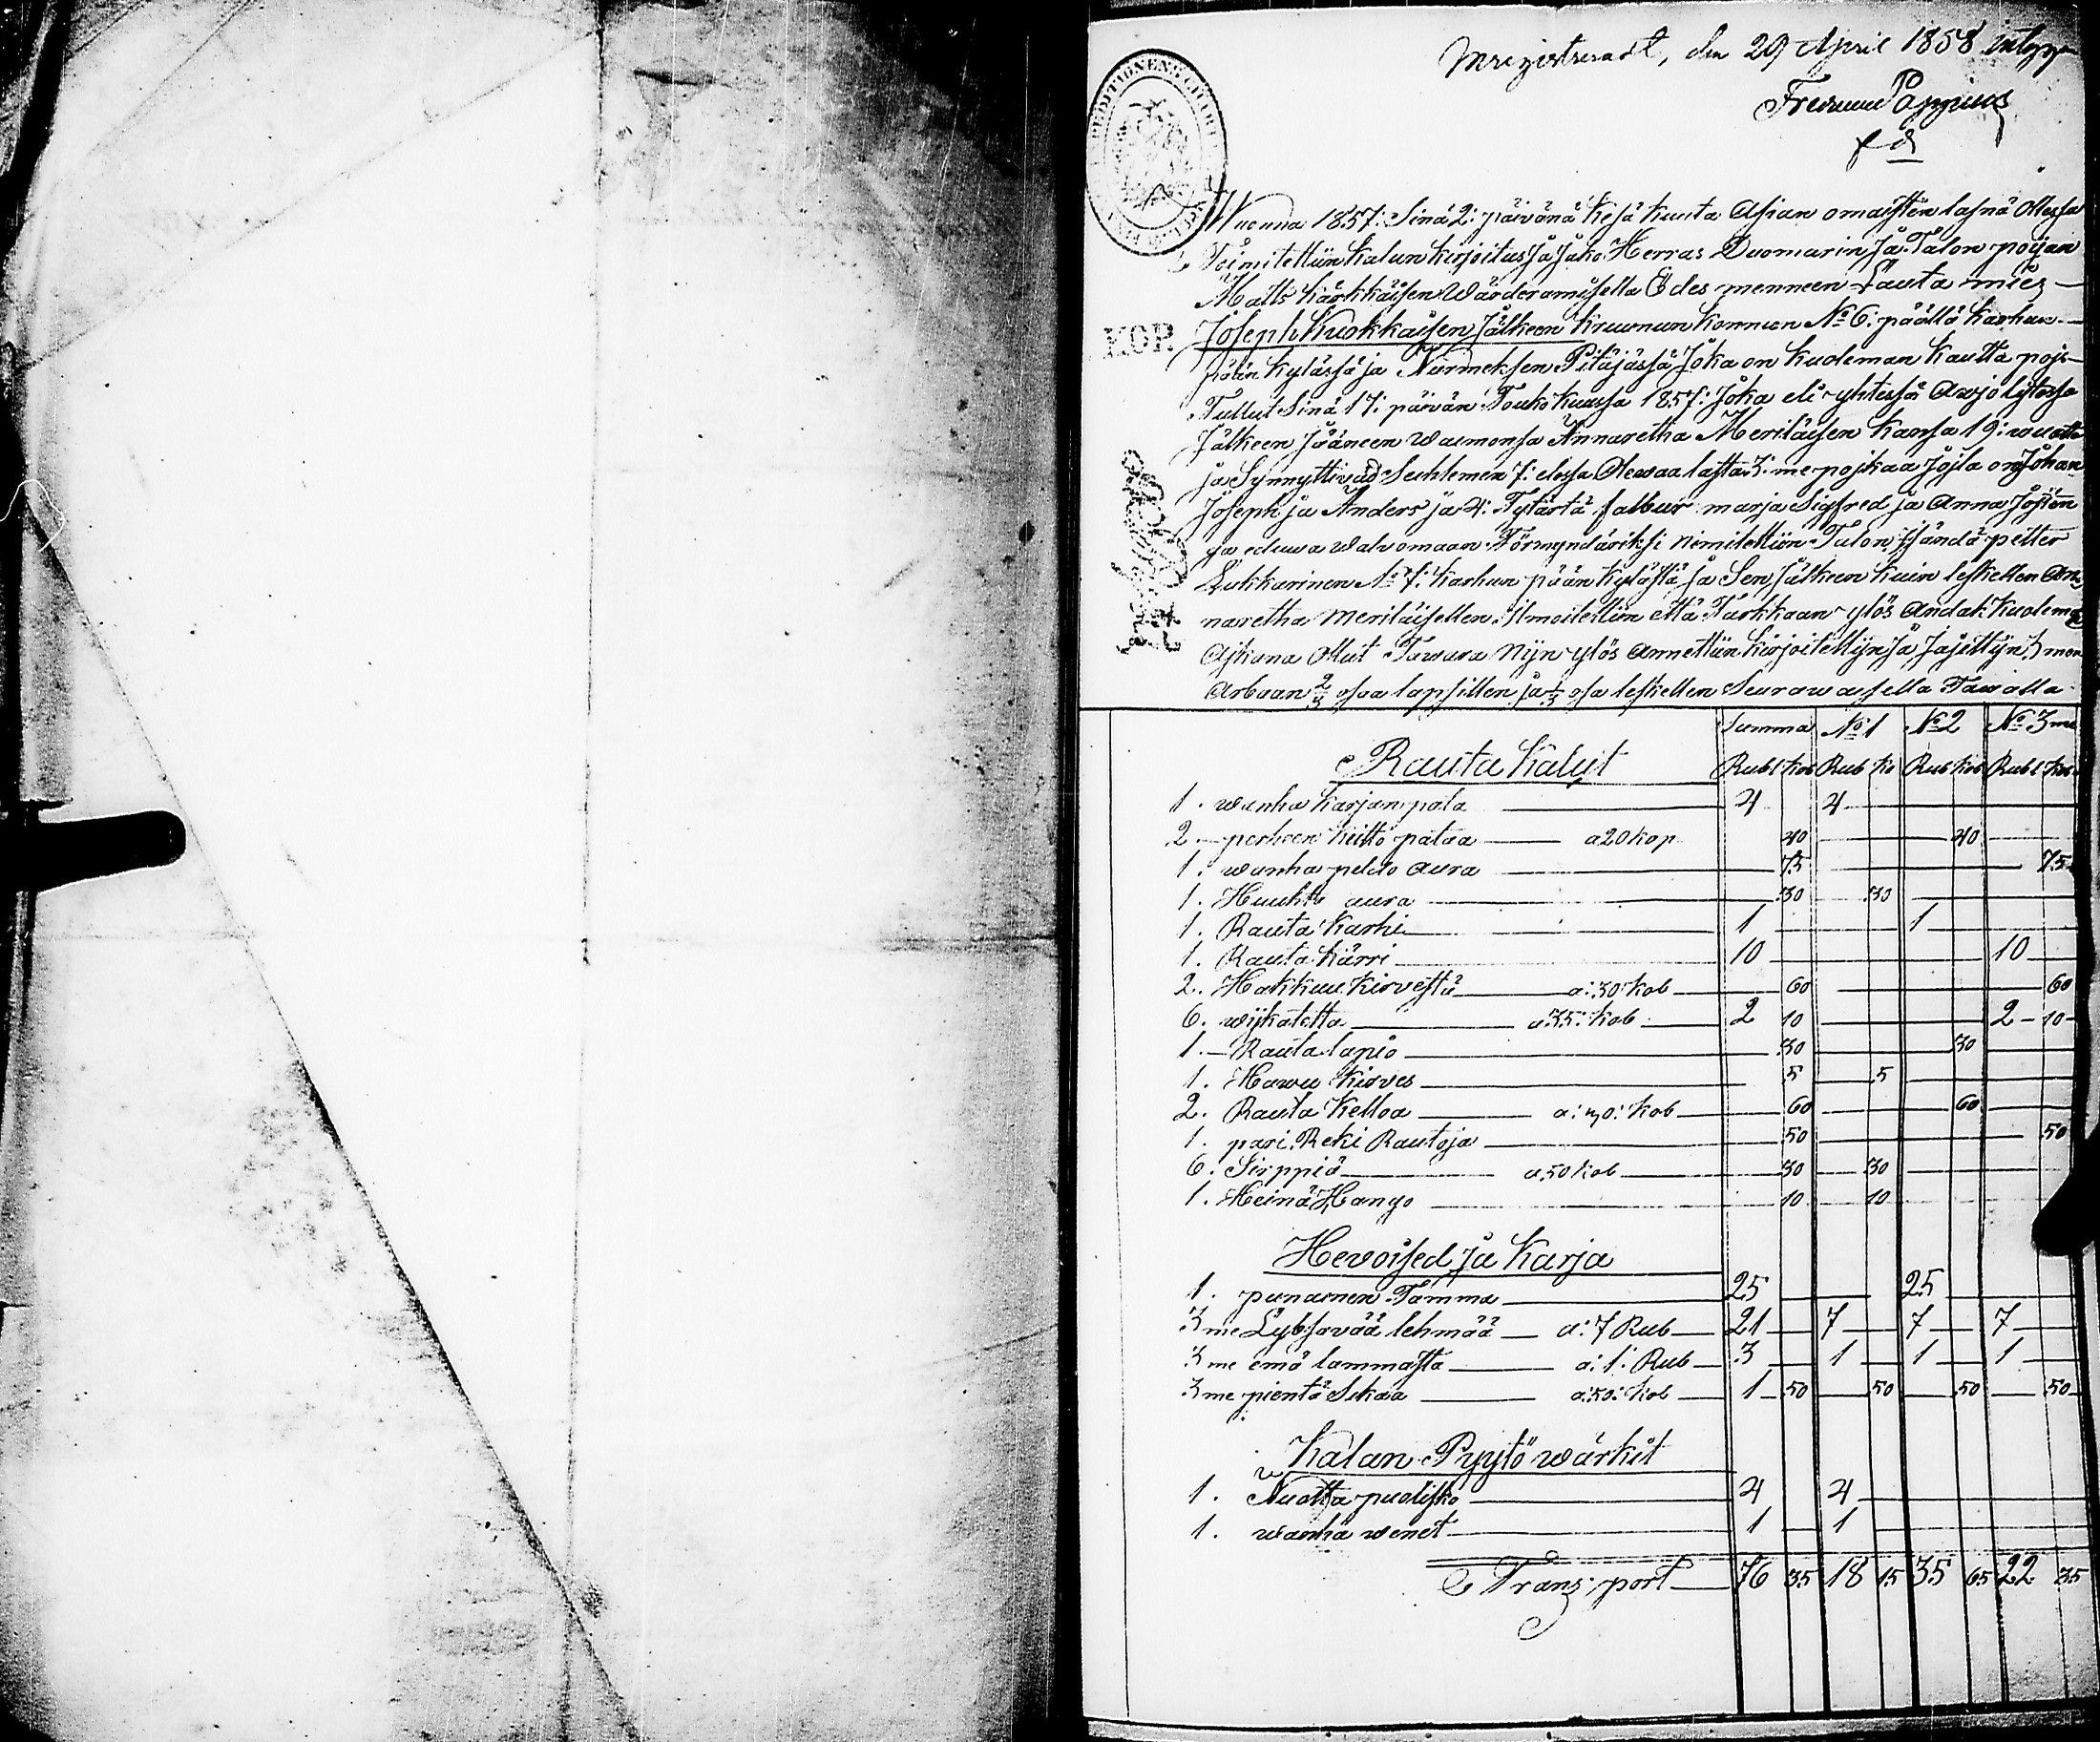 den 29 April 1858
Wuonna 1857: Sinä 2: päivänä Kesäkuuta Asian omaisten lasnä ollessa
Toimitettiin kalun kirjoitus ja jako Herras Duomarin ja Talon pojan
Matts Kärkkäisen Wärderamisella Edes menneen Lauta mies
KOP. Joseph Kuokkaisen jälkeen kruunun konnun No 6: päällä Karhun-
pään kylässä ja Nurmeksen Pitäjässä Joka on kuoleman kautta pojs
Tullut Sinä 17: päivän Toukokuussa 1857: Joka eli yhtessä
Jälkeen jääneen waimonsa Annaretha Meriläisen kanssa 19: wuotta
ja Synnyttiväd 7: elossa Olewaa lasta 3: me pojkaa Josta on Johan
Joseph ja Anders ja 4: Tytärtä marja Sigfred ja Anna
Förmyndäriksi nimitettiin Talon isändä petter
Lukkarinen No 7: karhun pään kylästä ja Sen jälkeen kuin leskellen An-
naretha Meriläisellen ilmoitettiin että Tarkkaan ylös andak kuoleman
Ajkana Ollut Tawara Nijn ylös annettiin kirjoitettijn ja jajettijn 3 men
Arbaan 2/3 osaa lapsillen ja 1/3 osa leskellen Seurawaisella Tawalla
Summa No 1 No 2 No 3 me
Rauta Kalut Rubl kob Rub ko Rub kob Rubl kob
1. wanha karjan pata 4 4
2. perheen keitto pataa a 20 kop 40 40
1. wanha pelto aura 75 75
1. Huuhta aura 30 30
1. Rauta karhi 1 1
1. Rauta kärri 10 10
2. Hakkuu kirvestä a: 30: kob 60 60
6. wijkatetta a 35: kob 2 10 2 10
1. Rauta lapio 30 30
1. Hawu kirves 5 5
2. Rauta kelloa a: 30: kob 60 60
1. pari Reki Rautoja 50 50
6. Sirppiä kob 30 30
1. Heinä Hango 10 10
Hevoised ja Karja
1. punainen Tamma 25 25
3 me Lybsävää lehmää a: 7 Rub 21 7 7 7
3 me emä lammasta a: 1: Rub 3 1 1 1
3 me pientä Sikaa a: 50: kob 1 50 50 50 50
Kalan Pyytö wärkit
1. Nuotta puolisko 4 4
1. wanha wenet 1 1
Transport 76 35 18 15 35 65 22 35